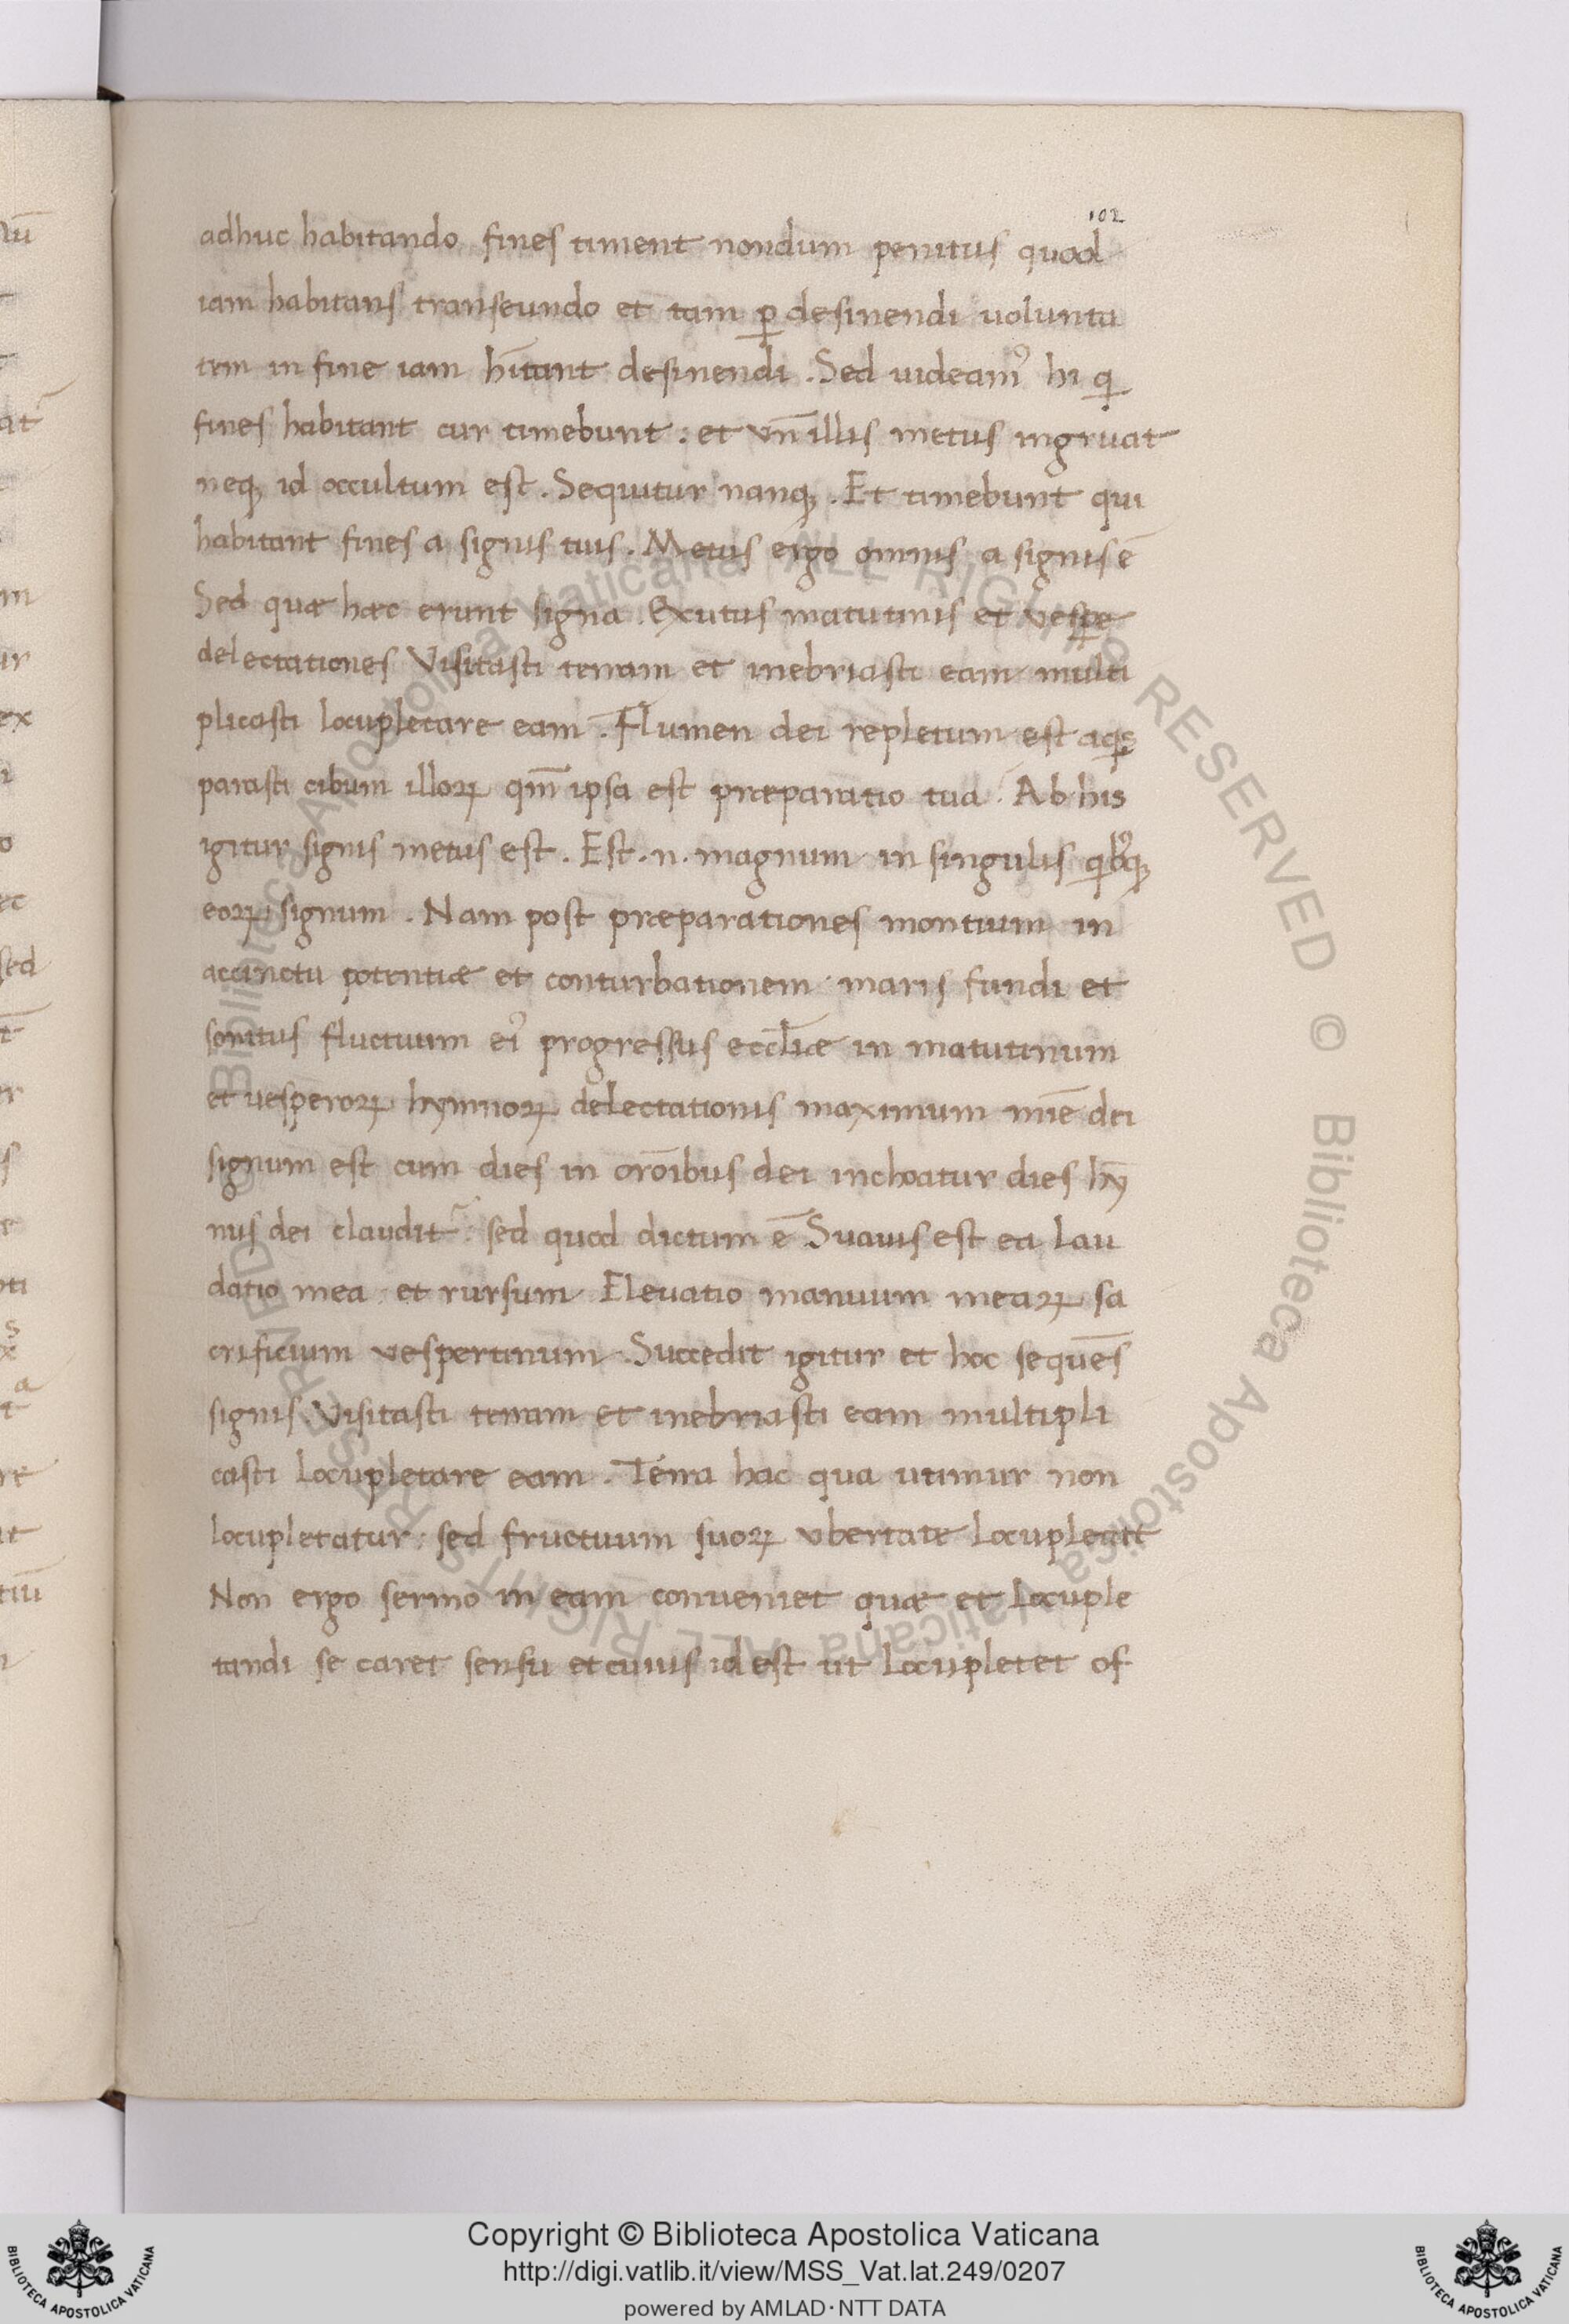 102
adhuc habitando fines timent nondum penitus quod
iam habitans transeundo et tam ꝑ desinendi uolunta
tem in fine iam hītant desinendi . Sed uideamꝰ hi q̲
fines habitant cur timebunt : et vn̄ illis metus ingruat
neqꝫ id occultum est . Sequitur nanqꝫ . Et timebunt qui
habitant fines a signis tuis . Metus ergo omnis a signis ē
Sed quæ hæc erunt signa . Exitus matutinis et vespe
delectationes Visitasti terram et inebriasti eam multi
plicasti locupletare eam . Flumen dei repletum est aqs
parasti cibum illoꝝ qm̄ ipsa est præparatio tua . Ab his
igitur signis metus est . Est .n. magnum in singulis qbꝰqꝫ
eoꝝ signum . Nam post præparationes montium in
accinctu potentiæ et conturbationem maris fundi et
sonitus fluctuum eiꝰ progressus eccl̄iæ in matutinum
et uesperoꝝ hymnoꝝ delectationis maximum mīe dei
signum est cum dies in orōibus dei inchoatur dies hȳ
nis dei claudit᷑ : sed quod dictum ē Suauis est ea lau
datio mea et rursum Eleuatio manuum meaꝝ sa
crificium vespertinum . Succedit igitur et hoc sequēs
signis Visitasti terram et inebriasti eam multipli
casti locupletare eam . Terra hac qua utimur non
locupletatur : sed fructuum suoꝝ vbertate locupletat
Non ergo sermo in eam conueniet quæ et locuple
tandi se caret sensu et cuius id est ut locupletet of
Biblioteca Apostolica Vaticana ALL RIGHTS RESERVED © Biblioteca Apostolica Vaticana ALL RIGHTS RESERVED
Copyright © Biblioteca Apostolica Vaticana
http://digi.vatlib.it/view/MSS_Vat.lat.249/0207
powered by AMLAD·NTT DATA
BIBLIOTECA APOSTOLICA VATICANA
BIBLIOTECA APOSTOLICA VATICANA